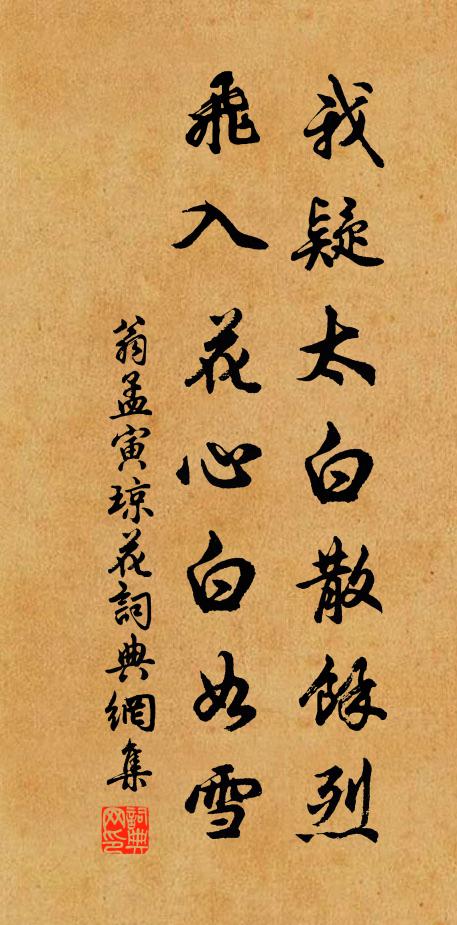 我疑太白散餘烈
飛入花心白如雪
翁孟寅琼花詞典網集
詞典网印